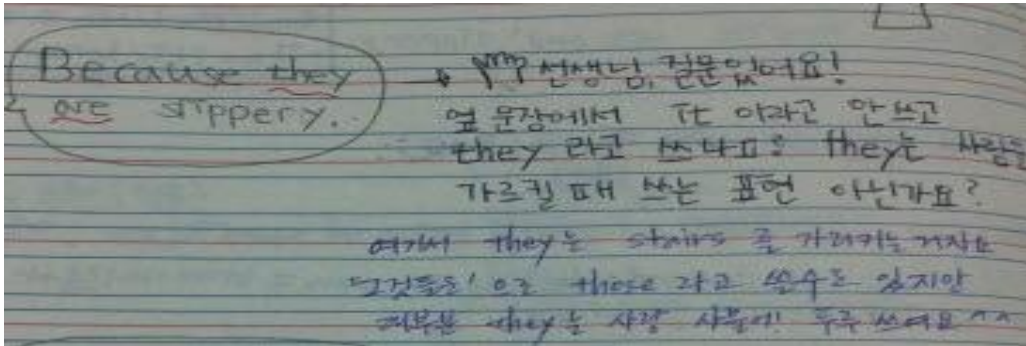 Because they
are slippery.
선생님, 질문있어요!
옆 문장에서 It 이라고 안쓰고
they 라고 쓰나요? they는 사람들
가르킬 때 쓰는 표현 아닌가요?
여기서 they는 stairs 를 가리키는거지요
'그것들을' 으로 those 라고 쓸수도 있지만
대부분 they는 사람 사물에 두루 쓰여요^^